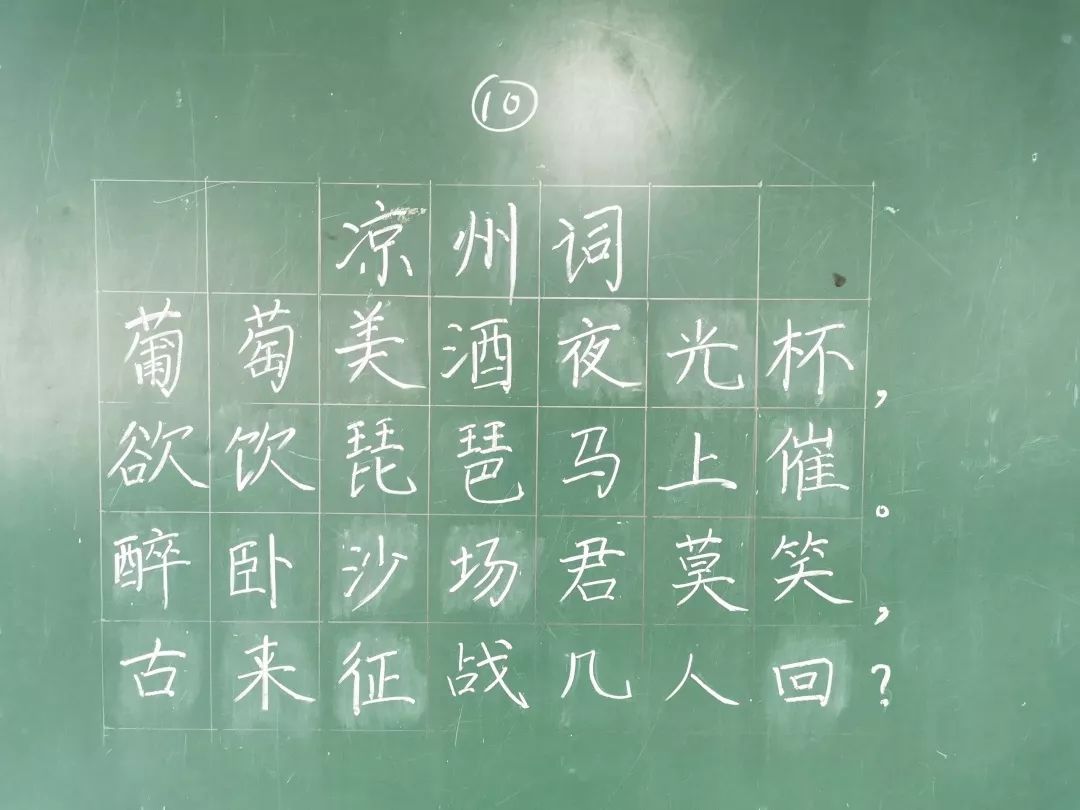 ⑩
凉州词
葡萄美酒夜光杯，
欲饮琵琶马上催。
醉卧沙场君莫笑，
古来征战几人回？